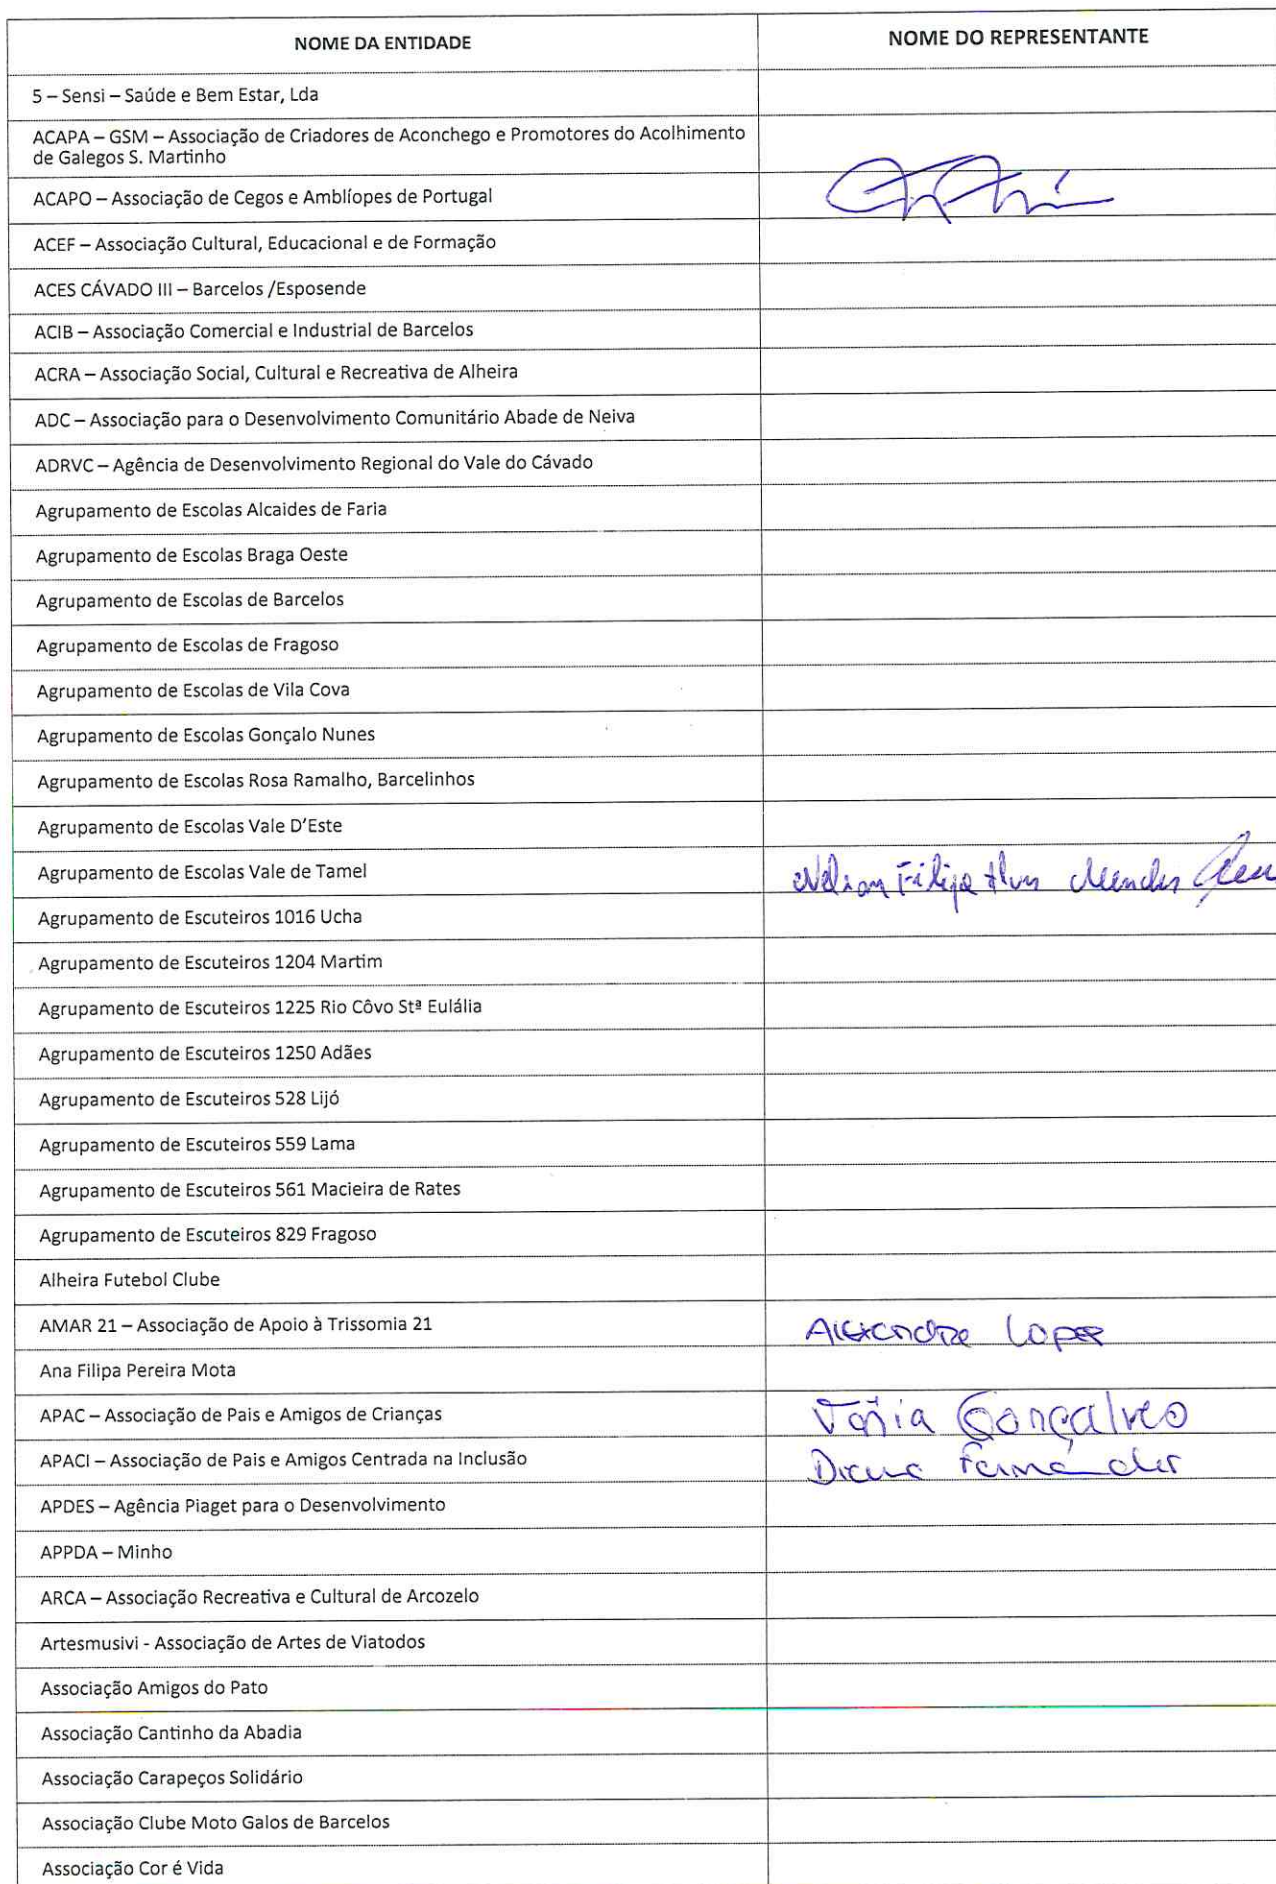 NOME DA ENTIDADE
NOME DO REPRESENTANTE
5 – Sensi – Saúde e Bem Estar, Lda
ACAPA – GSM – Associação de Criadores de Aconchego e Promotores do Acolhimento
de Galegos S. Martinho
ACAPO – Associação de Cegos e Amblíopes de Portugal
ACEF – Associação Cultural, Educacional e de Formação
ACES CÁVADO III – Barcelos /Esposende
ACIB – Associação Comercial e Industrial de Barcelos
ACRA – Associação Social, Cultural e Recreativa de Alheira
ADC – Associação para o Desenvolvimento Comunitário Abade de Neiva
ADRVC – Agência de Desenvolvimento Regional do Vale do Cávado
Agrupamento de Escolas Alcaides de Faria
Agrupamento de Escolas Braga Oeste
Agrupamento de Escolas de Barcelos
Agrupamento de Escolas de Fragoso
Agrupamento de Escolas de Vila Cova
Agrupamento de Escolas Gonçalo Nunes
Agrupamento de Escolas Rosa Ramalho, Barcelinhos
Agrupamento de Escolas Vale D'Este
Agrupamento de Escolas Vale de Tamel
Nelson Filipe Alves Mendes
Agrupamento de Escuteiros 1016 Ucha
Agrupamento de Escuteiros 1204 Martim
Agrupamento de Escuteiros 1225 Rio Côvo Stª Eulália
Agrupamento de Escuteiros 1250 Adães
Agrupamento de Escuteiros 528 Lijó
Agrupamento de Escuteiros 559 Lama
Agrupamento de Escuteiros 561 Macieira de Rates
Agrupamento de Escuteiros 829 Fragoso
Alheira Futebol Clube
AMAR 21 – Associação de Apoio à Trissomia 21
Alexandre Lopes
Ana Filipa Pereira Mota
APAC – Associação de Pais e Amigos de Crianças
Vânia Gonçalves
APACI – Associação de Pais e Amigos Centrada na Inclusão
Diana Fernandes
APDES – Agência Piaget para o Desenvolvimento
APPDA – Minho
ARCA – Associação Recreativa e Cultural de Arcozelo
Artesmusivi - Associação de Artes de Viatodos
Associação Amigos do Pato
Associação Cantinho da Abadia
Associação Carapeços Solidário
Associação Clube Moto Galos de Barcelos
Associação Cor é Vida